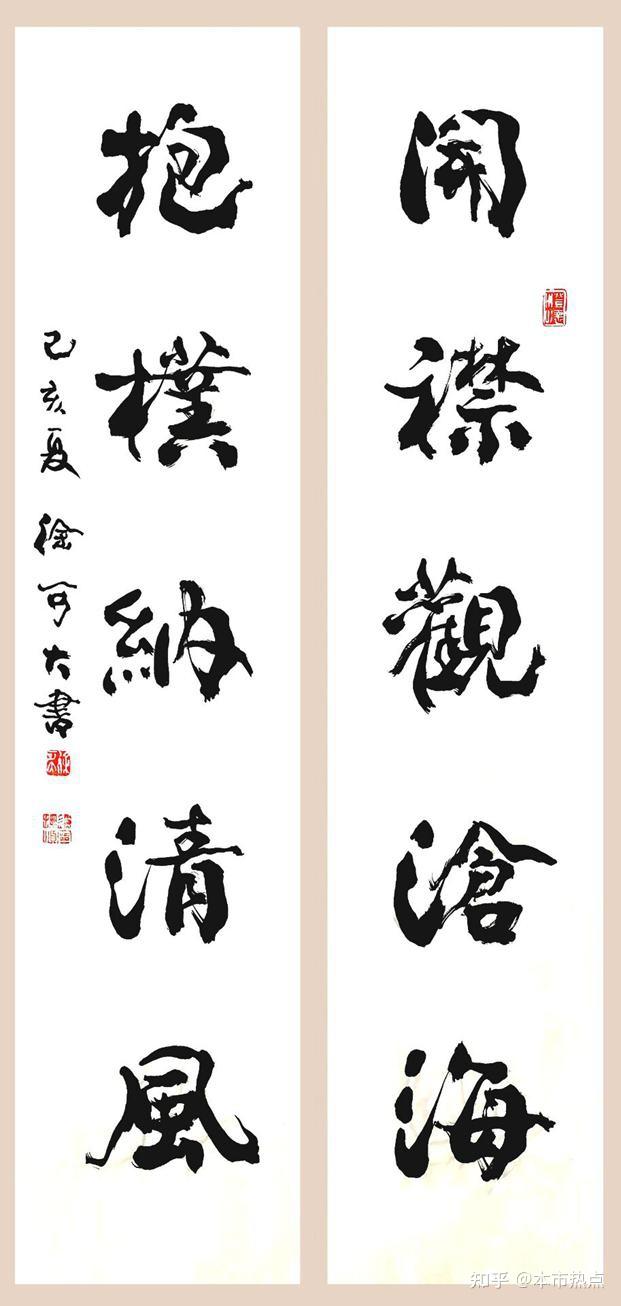 開襟觀滄海
抱樸納清風
己亥夏徐可大書
知乎 @本市热点